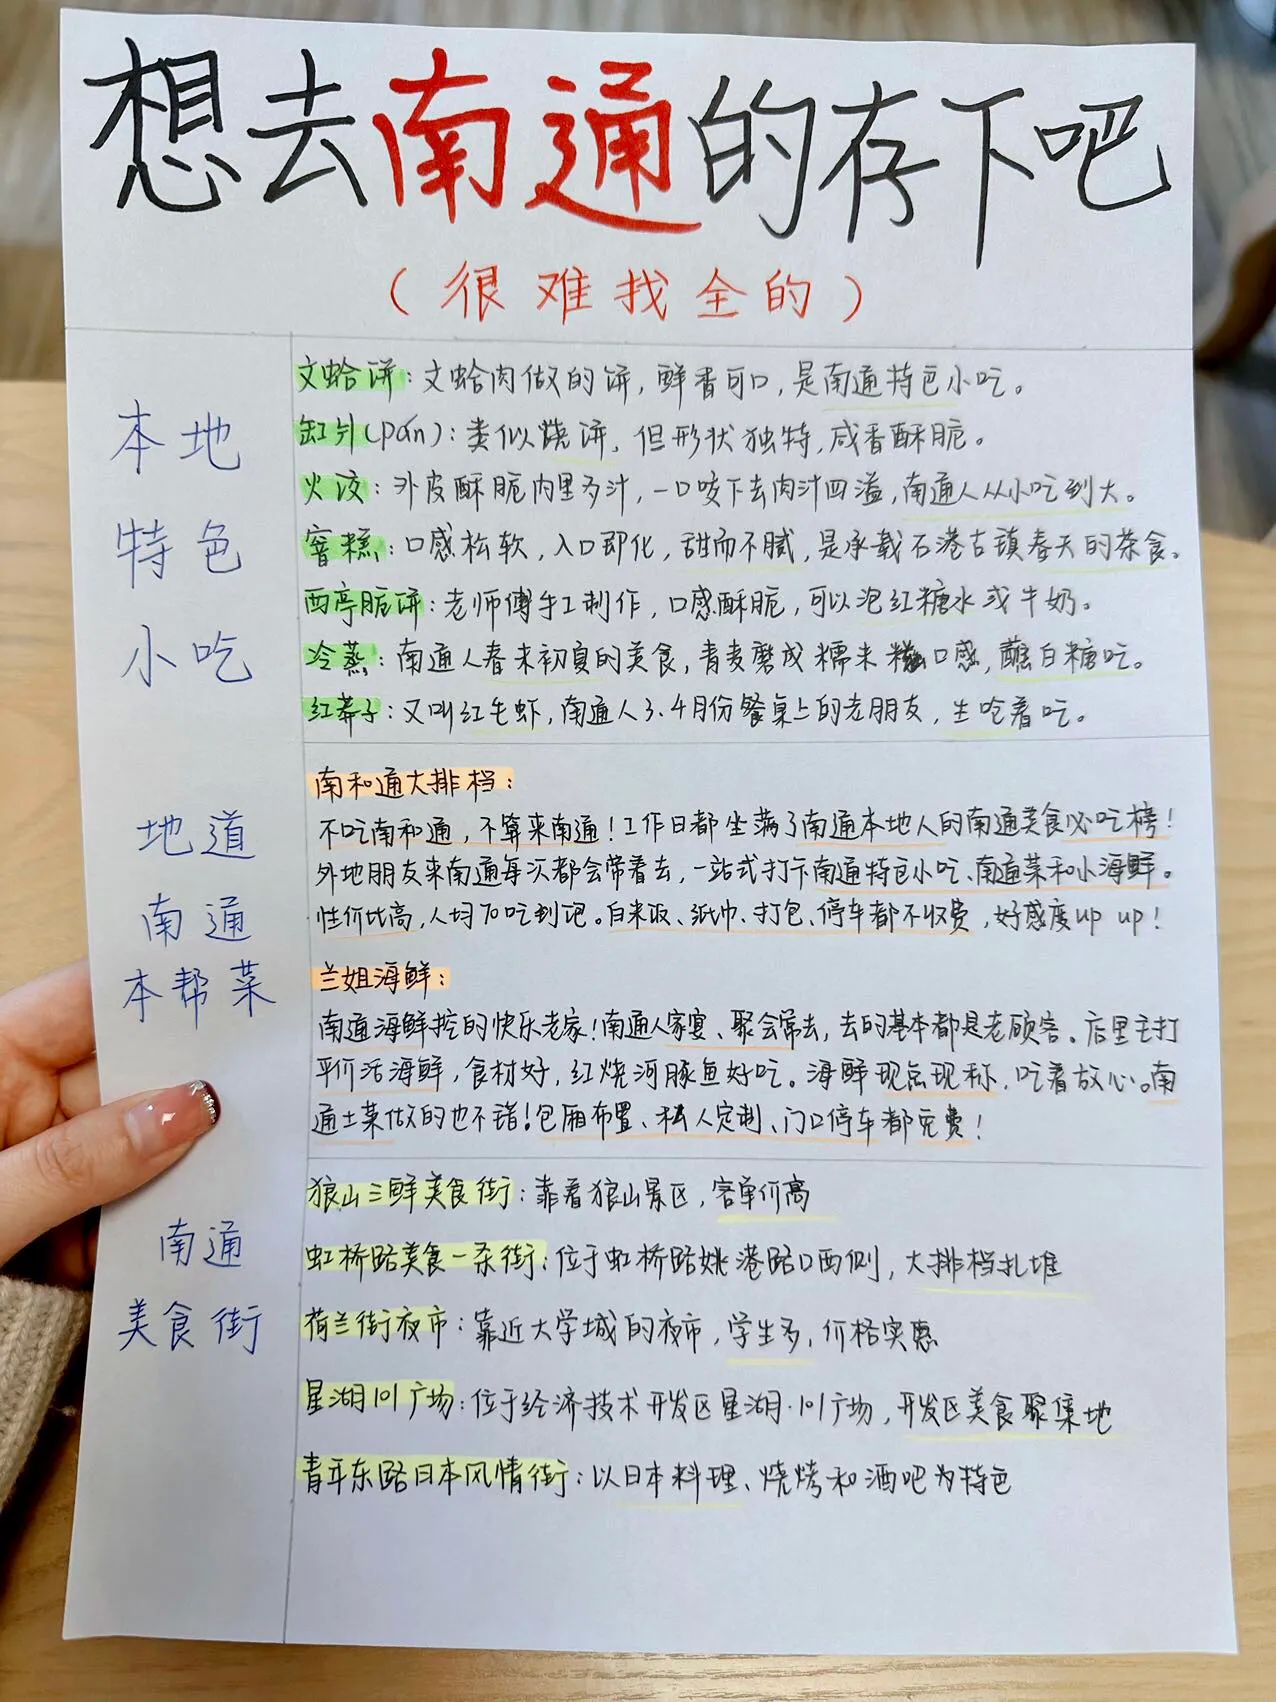 想去南通的存下吧
(很难找全的)
本地
特色
小吃
文蛤饼：文蛤肉做的饼，鲜香可口，是南通特色小吃。
缸爿(pán)：类似烧饼，但形状独特，咸香酥脆。
火饺：外皮酥脆内里多汁，一口咬下去肉汁四溢，南通人从小吃到大。
窨糕：口感松软，入口即化，甜而不腻，是承载石港古镇春天的茶食。
西亭脆饼：老师傅手工制作，口感酥脆，可以泡红糖水或牛奶。
冷蒸：南通人春末初夏的美食，青麦磨成糯米糍口感，蘸白糖吃。
红莽子：又叫红毛虾，南通人3、4月份餐桌上的老朋友，生呛着吃。
地道
南通
本帮菜
南和通大排档：
不吃南和通，不算来南通！工作日都坐满了南通本地人的南通美食必吃榜！
外地朋友来南通每次都会带着去，一站式打卡南通特色小吃、南通菜和小海鲜。
性价比高，人均70吃到饱。白米饭、纸巾、打包、停车都不收费，好感度up up！
兰姐海鲜：
南通海鲜挖的快乐老家！南通人家宴、聚会常去，去的基本都是老顾客。店里主打
平价活海鲜，食材好，红烧河豚鱼好吃。海鲜现点现称，吃着放心。南
通土菜做的也不错！包厢布置、私人定制、门口停车都免费！
南通
美食街
狼山三鲜美食街：靠着狼山景区，客单价高
虹桥路美食一条街：位于虹桥路姚港路口西侧，大排档扎堆
荷兰街夜市：靠近大学城的夜市，学生多，价格实惠
星湖101广场：位于经济技术开发区星湖·101广场，开发区美食聚集地
青年东路日本风情街：以日本料理、烧烤和酒吧为特色